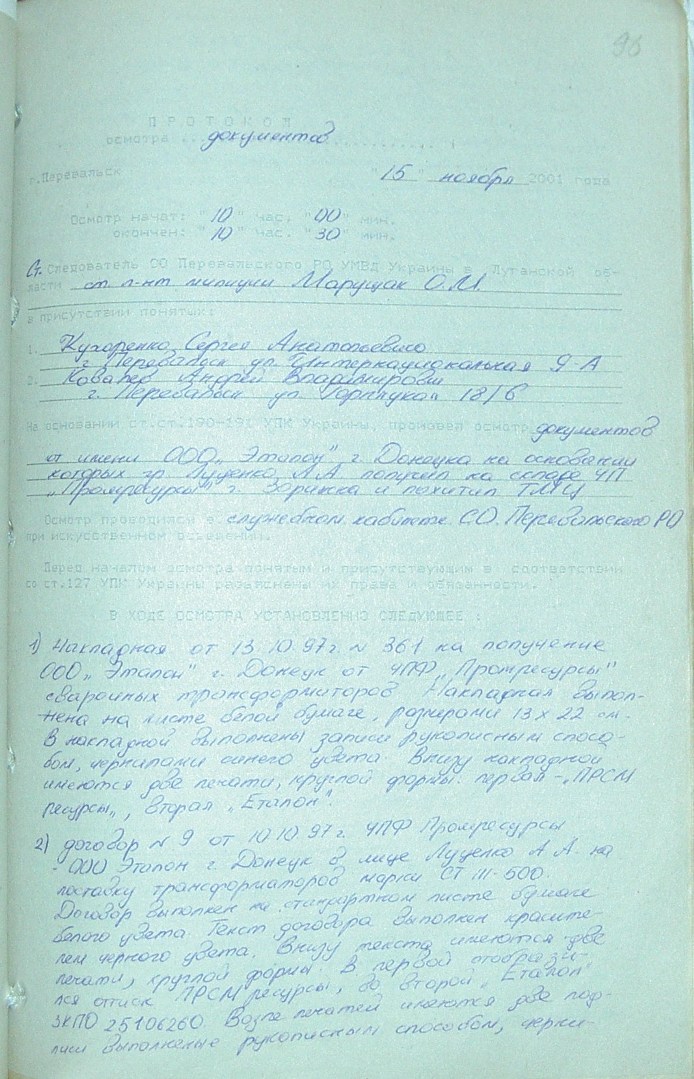 96
ПРОТОКОЛ
осмотра ... документов ...........
г.Перевальск "15" ноября 2001 года
Осмотр начат: "10" час. "00" мин.
окончен: "10" час. "30" мин.
Ст. Следователь СО Перевальского РО УМВД Украины в Луганской об-
ласти ст л-нт милиции Марущак О.М.
в присутствии понятых:
1. Кухоренко Сергея Анатольевича
г. Перевальск ул. Интернациональная 9-А
2. Андрей Владимирович
г. Перевальск ул. 18/6
На основании ст.ст.190-191 УПК Украины, произвел осмотр документов
от имени ООО „Эталон" г. Донецка на основании
которых гр. Луценко А.А получил на складе ЧП
„Промресурсы" г. Зоринска и похитил ТМЦ
Осмотр проводился в служебном кабинете СО Перевальского РО
при искусственном освещении.
Перед началом осмотра понятым и присутствующим в соответствии
со ст.127 УПК Украины разъяснены их права и обязанности.
В ХОДЕ ОСМОТРА УСТАНОВЛЕНО СЛЕДУЮЩЕЕ :
1) Накладная от 13.10.97г. N 361 на получение
ООО „Эталон" г. Донецк от ЧПФ „Промресурсы"
сварочных трансформаторов. Накладная выпол-
нена на листе белой бумаге, размерами 13 х 22 см.
В накладной выполнены записи рукописным спосо-
бом, чернилами синего цвета. Внизу накладной
имеются две печати, круглой формы: первая - „ПРСМ
ресурсы„, вторая „Еталон".
2) договор N 9 от 10.10.97г. ЧПФ Промресурсы
- ООО Эталон г. Донецк в лице Луценко А.А. на
поставку трансформаторов марки СТ Ш-500.
Договор выполнен на стандартном листе бумаге
белого цвета. Текст договора выполнен красите-
лем черного цвета. Внизу текста имеются две
печати, круглой формы. В первой отобрази-
лся оттиск ПРСМ ресурсы, во второй „Еталон"
ЗКПО 25106260. Возле печатей имеются две под-
писи выполненые рукописным способом, черни-